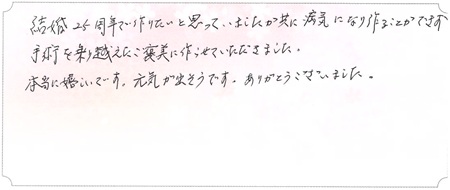 結婚25周年で作りたいと思っていましたが共に病気になり作ることができず
手術を乗り越えたご褒美に作らせていただきました。
本当に嬉しいです。元気が出そうです。ありがとうございました。